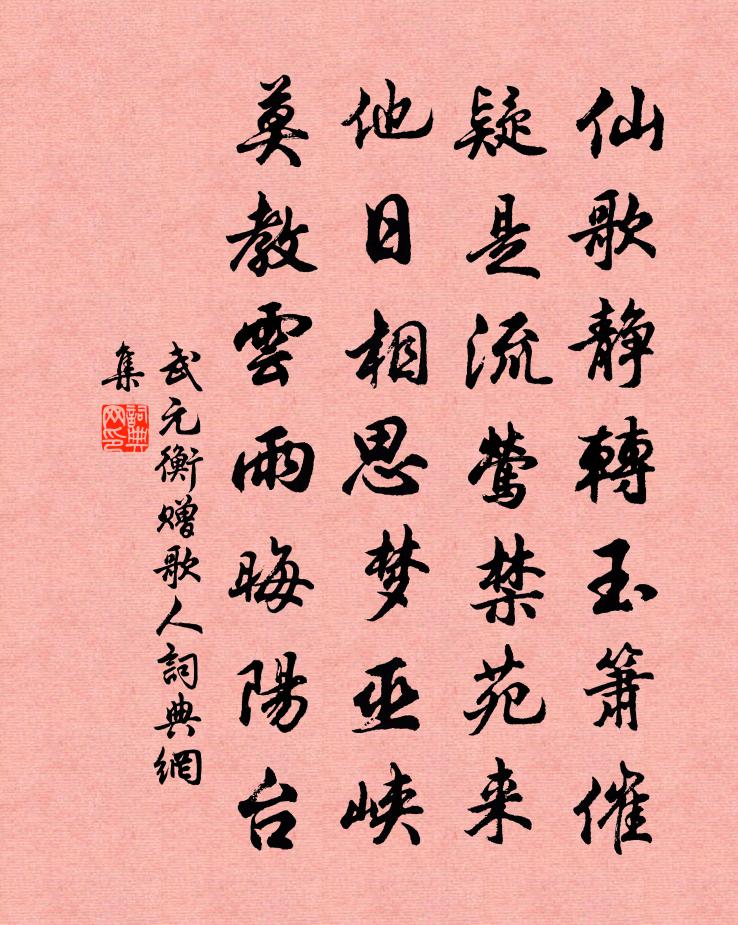 仙歌静轉玉箫催
疑是流莺禁苑来
他日相思梦巫峡
莫教雲雨晦陽台
武元衡赠歌人詞典網
集
詞典
网印